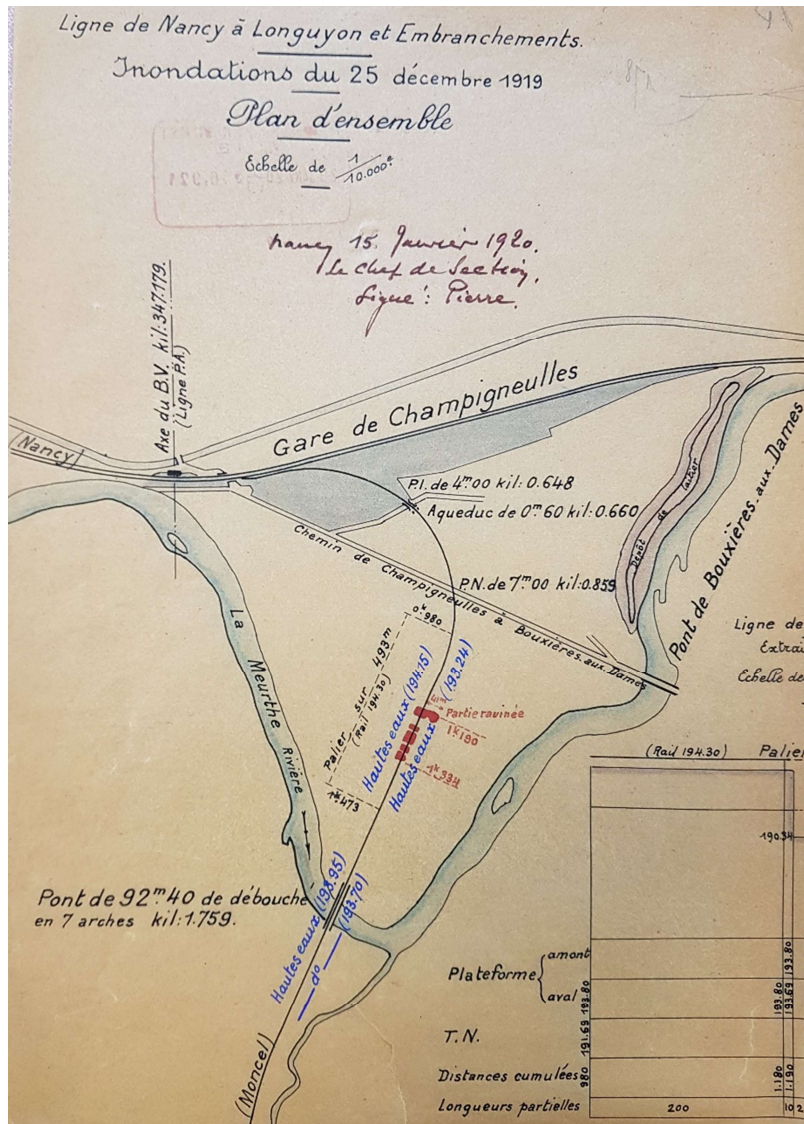 Ligne de Nancy à Longuyon et Embranchements.
Inondations du 25 décembre 1919
Plan d'ensemble
Echelle de 1/10.000e
Nancy 15 Janvier 1920.
Le Chef de Section,
Signé: Pierre.
Axe du B.V. kil:347.179.
(Ligne P.A.)
(Nancy)
Gare de Champigneulles
P.I. de 4m00 kil: 0.648
Aqueduc de 0m60 kil: 0.660
Chemin de Champigneulles à Bouxières.aux.Dames
P.N. de 7m00 kil:0.859
Dépôt de laitier
Pont de Bouxières.aux.Dames
La Meurthe Rivière
0k980
Palier sur 493m
(Rail 194.30)
1k473
Hautes eaux (194.15)
Hautes eaux (193.24)
Partie ravinée
1k190
1k334
Pont de 92m40 de débouché
en 7 arches kil:1.759.
Hautes eaux (193.95)
do (193.70)
(Moncel)
Ligne de
Extrai
Echelle de
(Rail 194.30) Palier
190.34
Plateforme
amont
193.80
aval
193.80
193.80
193.69
T.N.
191.69
Distances cumulées
980
1.180
1.190
Longueurs partielles
200
10
2